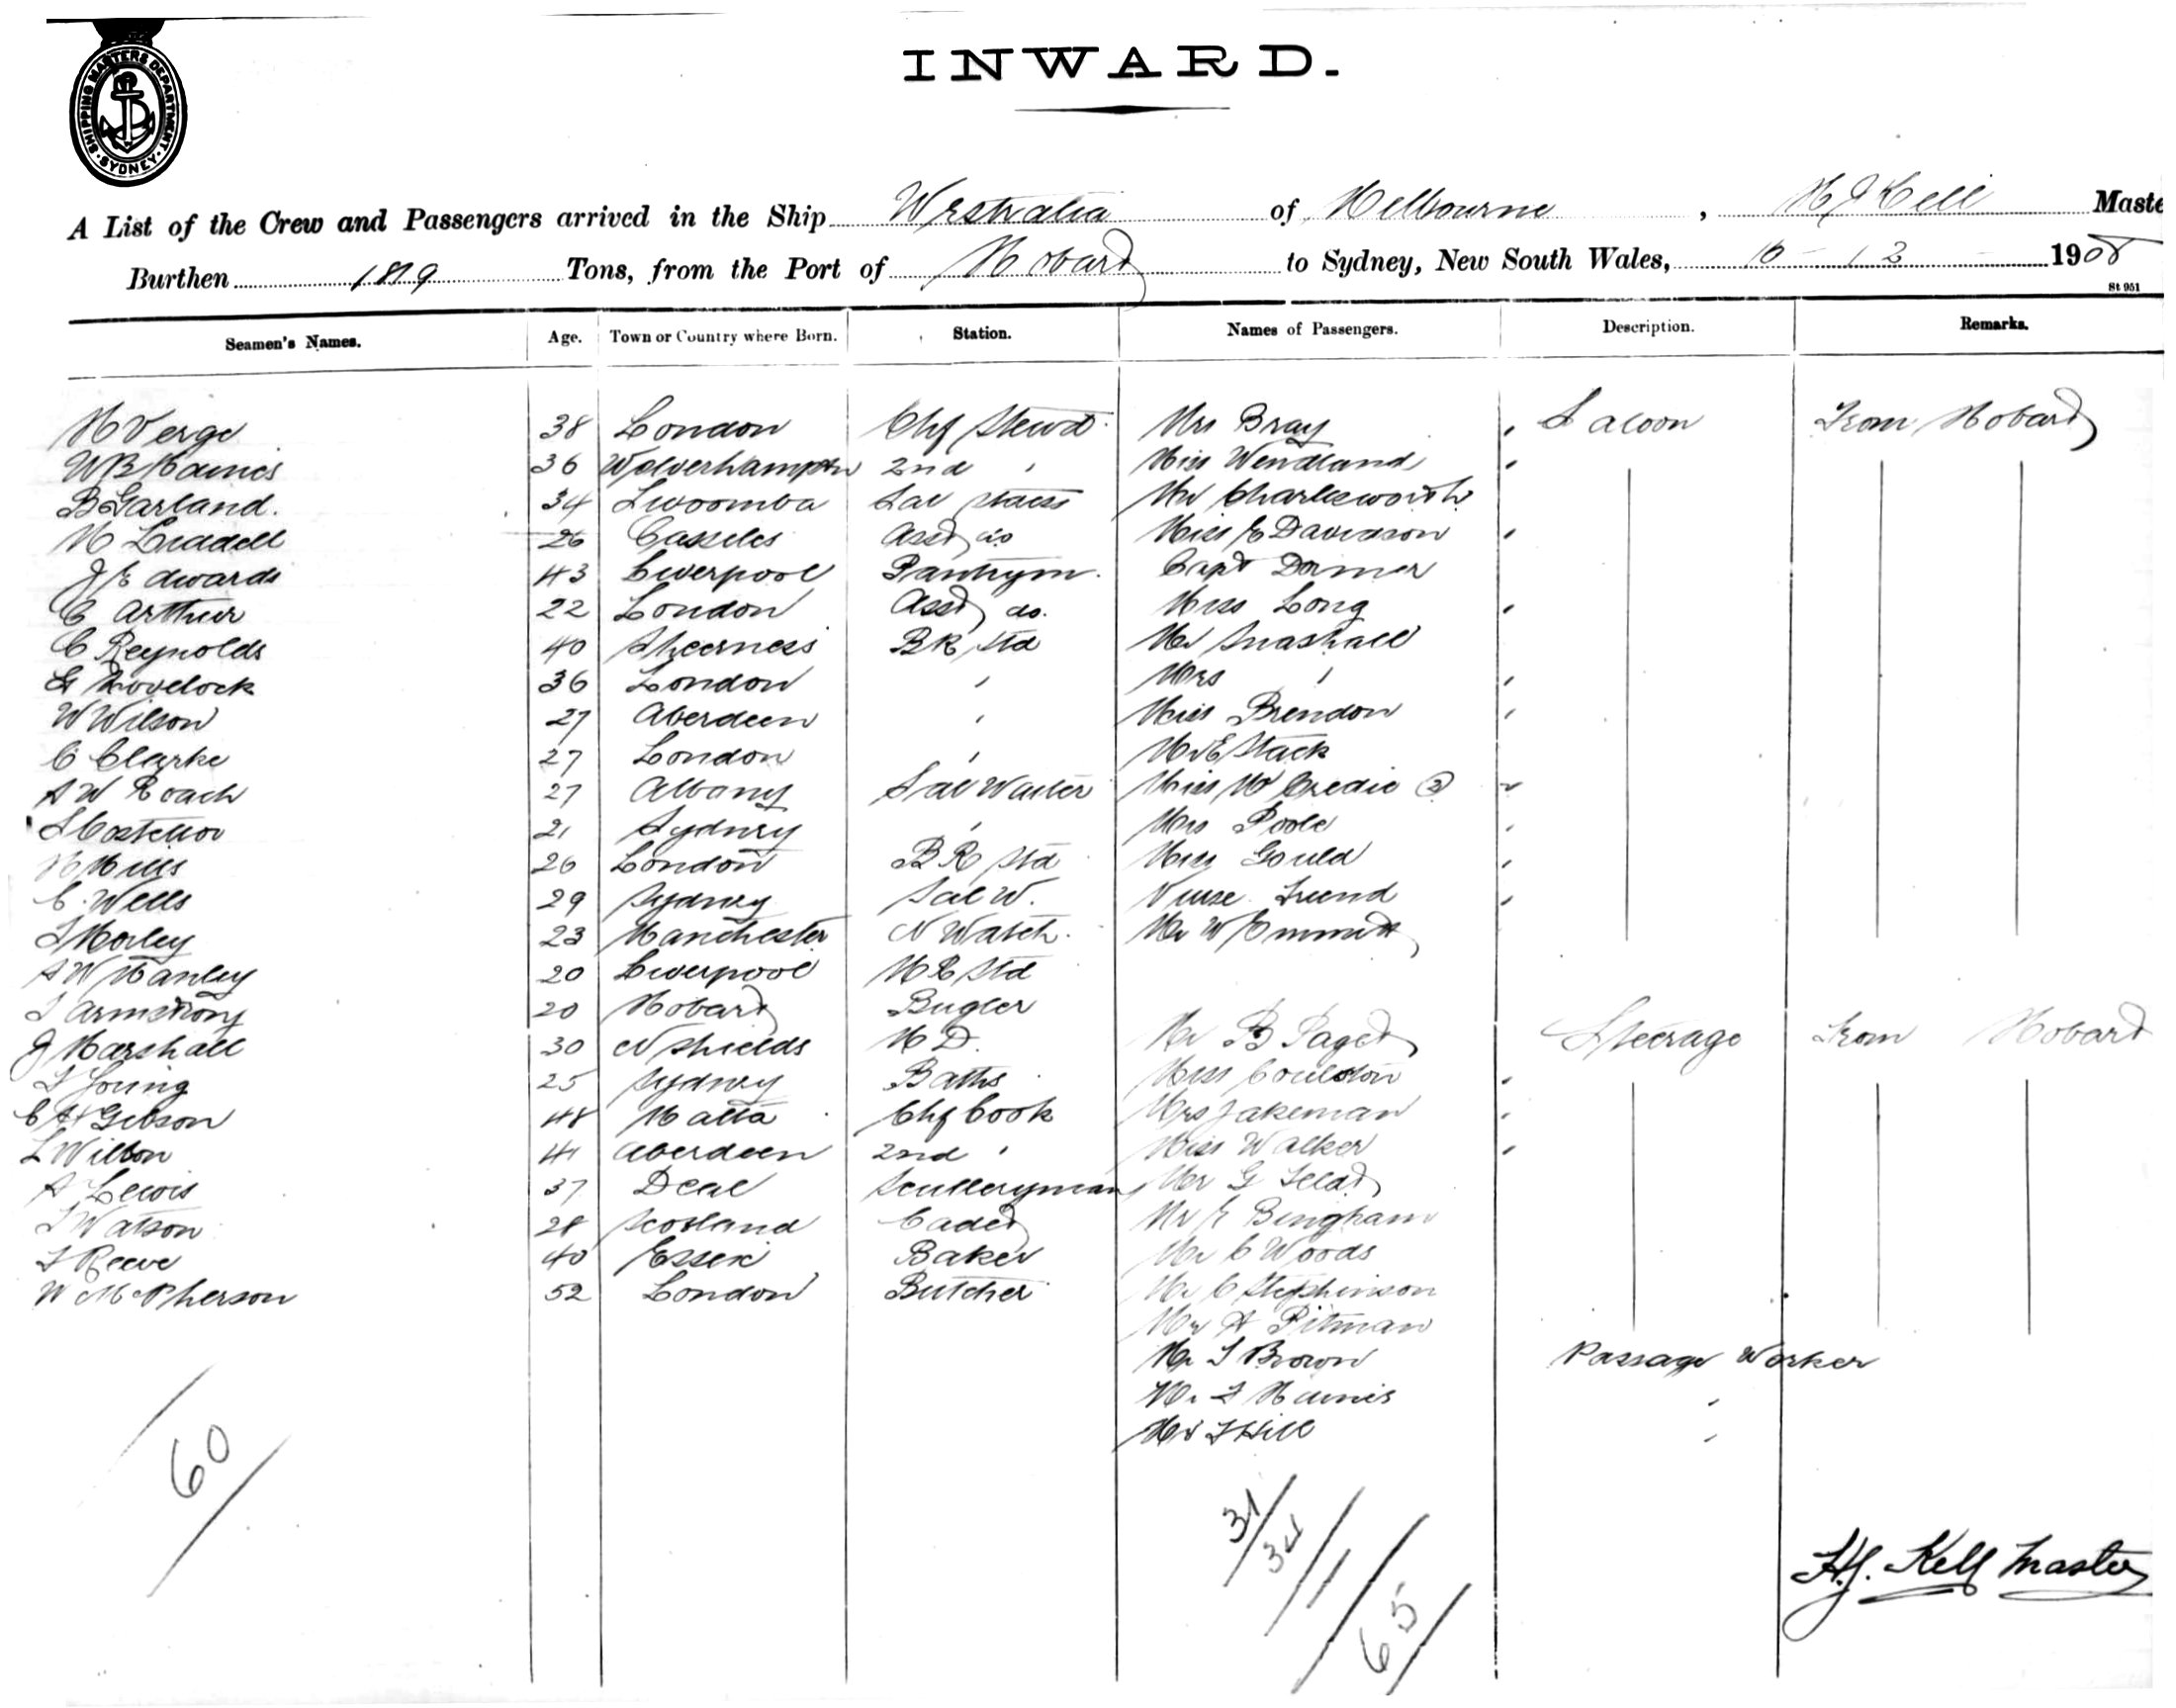 SHIPPING MASTERS DEPARTMENT · SYDNEY ·
INWARD.
A List of the Crew and Passengers arrived in the Ship Westralia of Melbourne, H J Kell Maste
Burthen 1819 Tons, from the Port of Hobart to Sydney, New South Wales, 10 - 12 - 1908
St 951
Seamen's Names. Age. Town or Country where Born. Station. Names of Passengers. Description. Remarks.
H Verge 38 London Chf Stewd Mrs Bray " Saloon From Hobart
W B Haines 36 Wolverhampton 2nd " Miss Wendland "
B Garland. 34 Sal Stwess Mr Charlesworth
H Liddell 26 Asst do Miss E Davidson "
J Edwards 43 Liverpool Pantrym. Capt Dormer
C Arthur 22 London Asst do. Miss Long "
C Reynolds 40 Sheerness BR Std Mr Snashall
G Lovelock 36 London " Mrs " "
W Wilson 27 Aberdeen " Miss Brendon "
C Clarke 27 London " Mr E Stack
A W Roach 27 Albany Sal Waiter Miss McCredie (2) "
S Costelloe 21 Sydney " Mrs Poole "
H Mills 26 London BR Std Miss Gould "
C. Wells 29 Sydney Sal W. Nurse Friend "
Morley 23 Manchester N Watch. Mr W Emmitt
A W Manley 20 Liverpool MR Std
Armstrong 20 Hobart Bugler
J Marshall 30 N Shields M D. Mr B Paget Steerage From Hobart
Young 25 Sydney Baths Miss Coulston "
C H Gibson 48 Malta Chf Cook Mrs Jakeman "
L Wilson 41 Aberdeen 2nd " Miss Walker "
A Lewis 37 Deal Sculleryman Mr G
Watson 28 Scotland Cadet Mr E Bingham
Reeve 40 Essex Baker Mr C Woods
W McPherson 52 London Butcher Mr C Stephinson
Mr A Pitman
Mr Brown Passage Worker
Mr Haines "
Mr Hill "
60
31/
34/
1/
65/
H.J. Kell Master